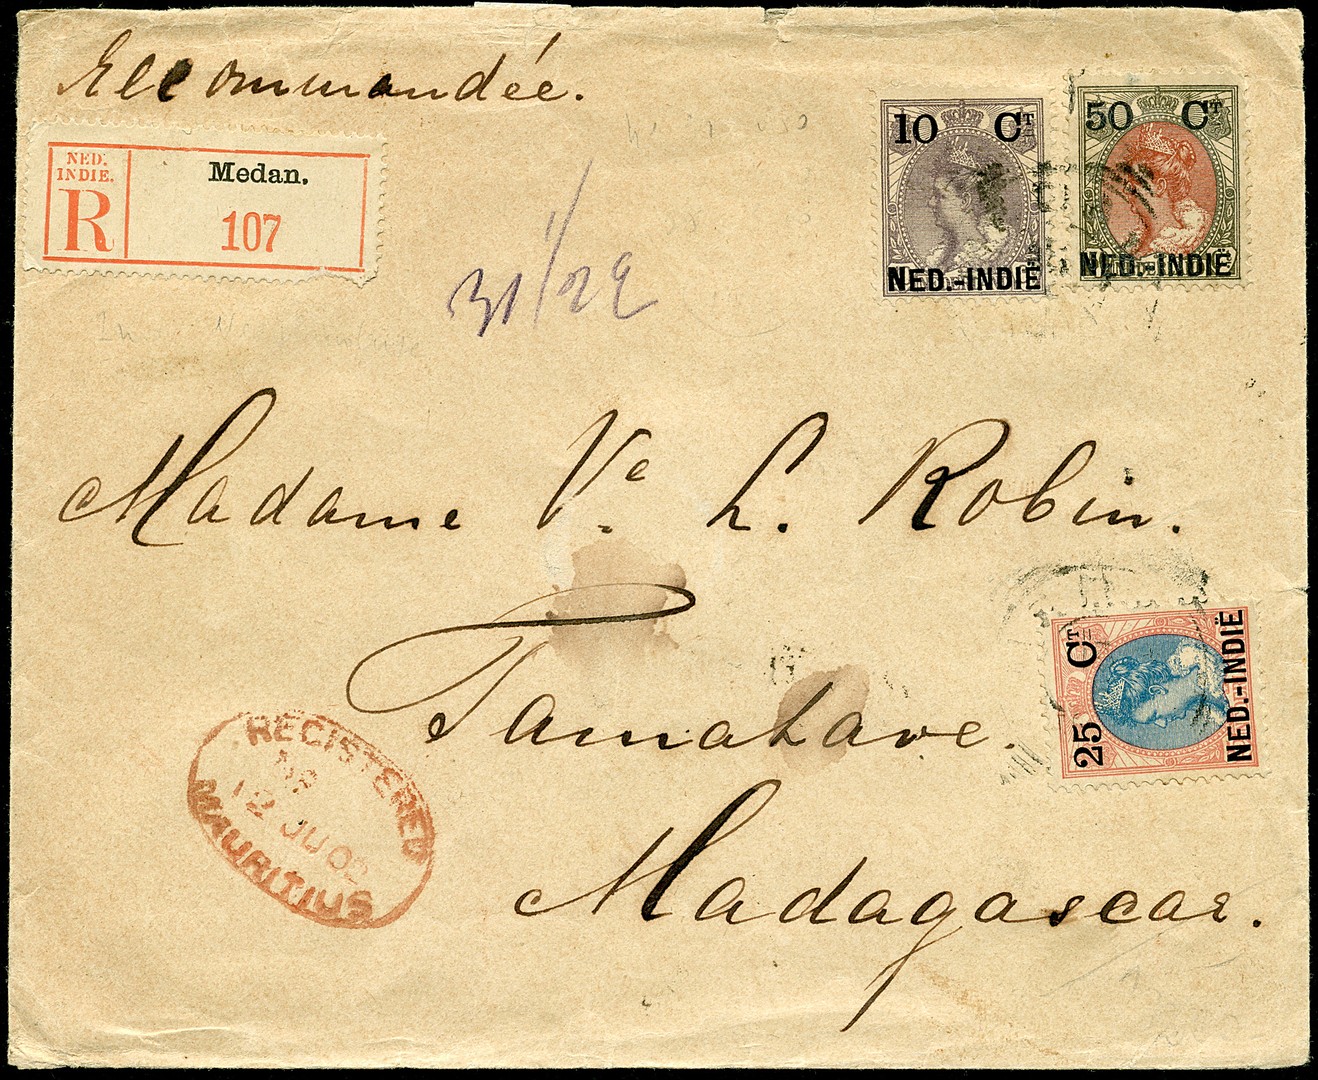 Recommandée.
NED.
INDIE.
R
Medan.
107
10 CT
NED.-INDIË
50 CT
NED.-INDIË
Madame Ve L. Robin.
Tamatave.
25 CT
NED.-INDIË
REGISTERED
12 JU 02
MAURITIUS
Madagascar.